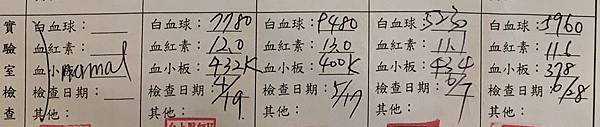 實驗室檢查
白血球：
血紅素：
血小板：
檢查日期：
其他：
normal
白血球：7780
血紅素：12.0
血小板：432K
檢查日期：4/19
其他：
白血球：9480
血紅素：13.0
血小板：400K
檢查日期：5/17
其他：
白血球：5230
血紅素：11.1
血小板：434
檢查日期：6/7
其他：
白血球：3960
血紅素：11.6
血小板：378
檢查日期：6/28
其他：